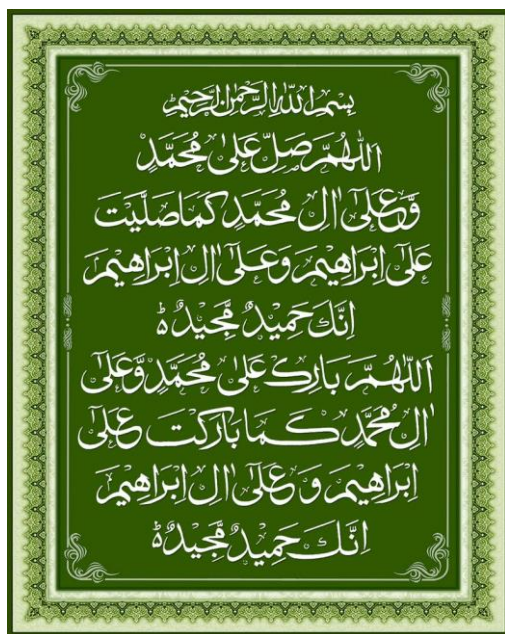 بِسْمِ اللّٰهِ الرَّحْمٰنِ الرَّحِيْمِ
اَللّٰهُمَّ صَلِّ عَلٰى مُحَمَّدٍ
وَّعَلٰٓى اٰلِ مُحَمَّدٍ كَمَا صَلَّيْتَ
عَلٰٓى اِبْرَاهِيْمَ وَعَلٰٓى اٰلِ اِبْرَاهِيْمَ
اِنَّكَ حَمِيْدٌ مَّجِيْدٌ ہ
اَللّٰهُمَّ بَارِكْ عَلٰى مُحَمَّدٍ وَّعَلٰٓى
اٰلِ مُحَمَّدٍ كَمَا بَارَكْتَ عَلٰٓى
اِبْرَاهِيْمَ وَ عَلٰٓى اٰلِ اِبْرَاهِيْمَ
اِنَّكَ حَمِيْدٌ مَّجِيْدٌ ہ